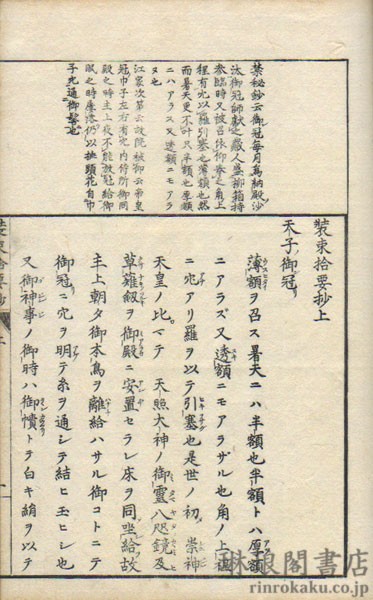 禁秘鈔云御冠毎月為納殿沙
汰御冠師献之蔵人盛柳箱持
参臨時又被召依仰巻之角上
程有穴以羅引塞也薄額也然
而暑天更不叶只半額也厚額
ニハアラス又透額ニモアラ
ヌ也
江家次第云故院被仰云帝皇
冠巾子左右有穴内侍所御同
殿之時主上夜不能放冠給御
眠之時屢落仍以挿頭花自巾
子穴通御髻也
装束拾要抄上
天子御冠
薄額ヲ召ス暑天ニハ半額也半額トハ厚額
ニアラズ又透額ニモアラザル也角ノ上
ニ穴アリ羅ヲ以テ引塞也是世ノ初崇神
天皇ノ比マテ天照大神ノ御霊八咫鏡及
草薙劔ヲ御殿ニ安置セラレ床ヲ同坐給故
主上朝夕御本鳥ヲ離給ハサル御コトニテ
御冠ニ穴ヲ明テ糸ヲ通シテ結ヒ玉ヒシ也
又御神事ノ御時ハ御幘トテ白キ絹ヲ以テ
装束拾要抄上
琳琅閣書店
rinrokaku.co.jp